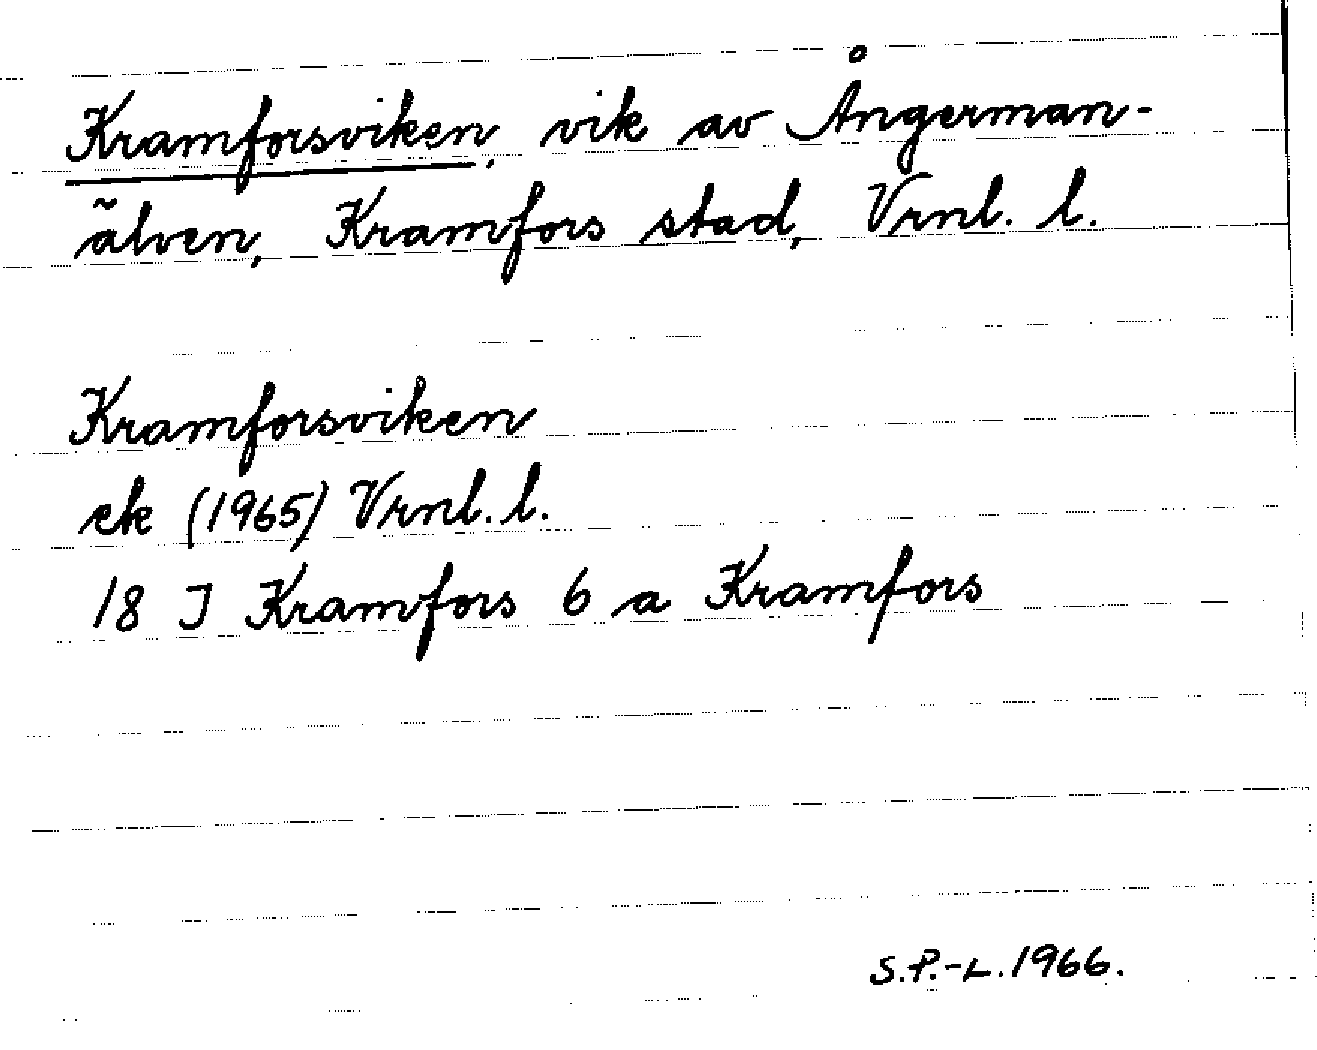 Kramforsviken, vik av Ångerman-
älven, Kramfors stad, Vrnl. l.
Kramforsviken
ek (1965) Vrnl. l.
18 J Kramfors 6 a Kramfors
S.P.-L. 1966.